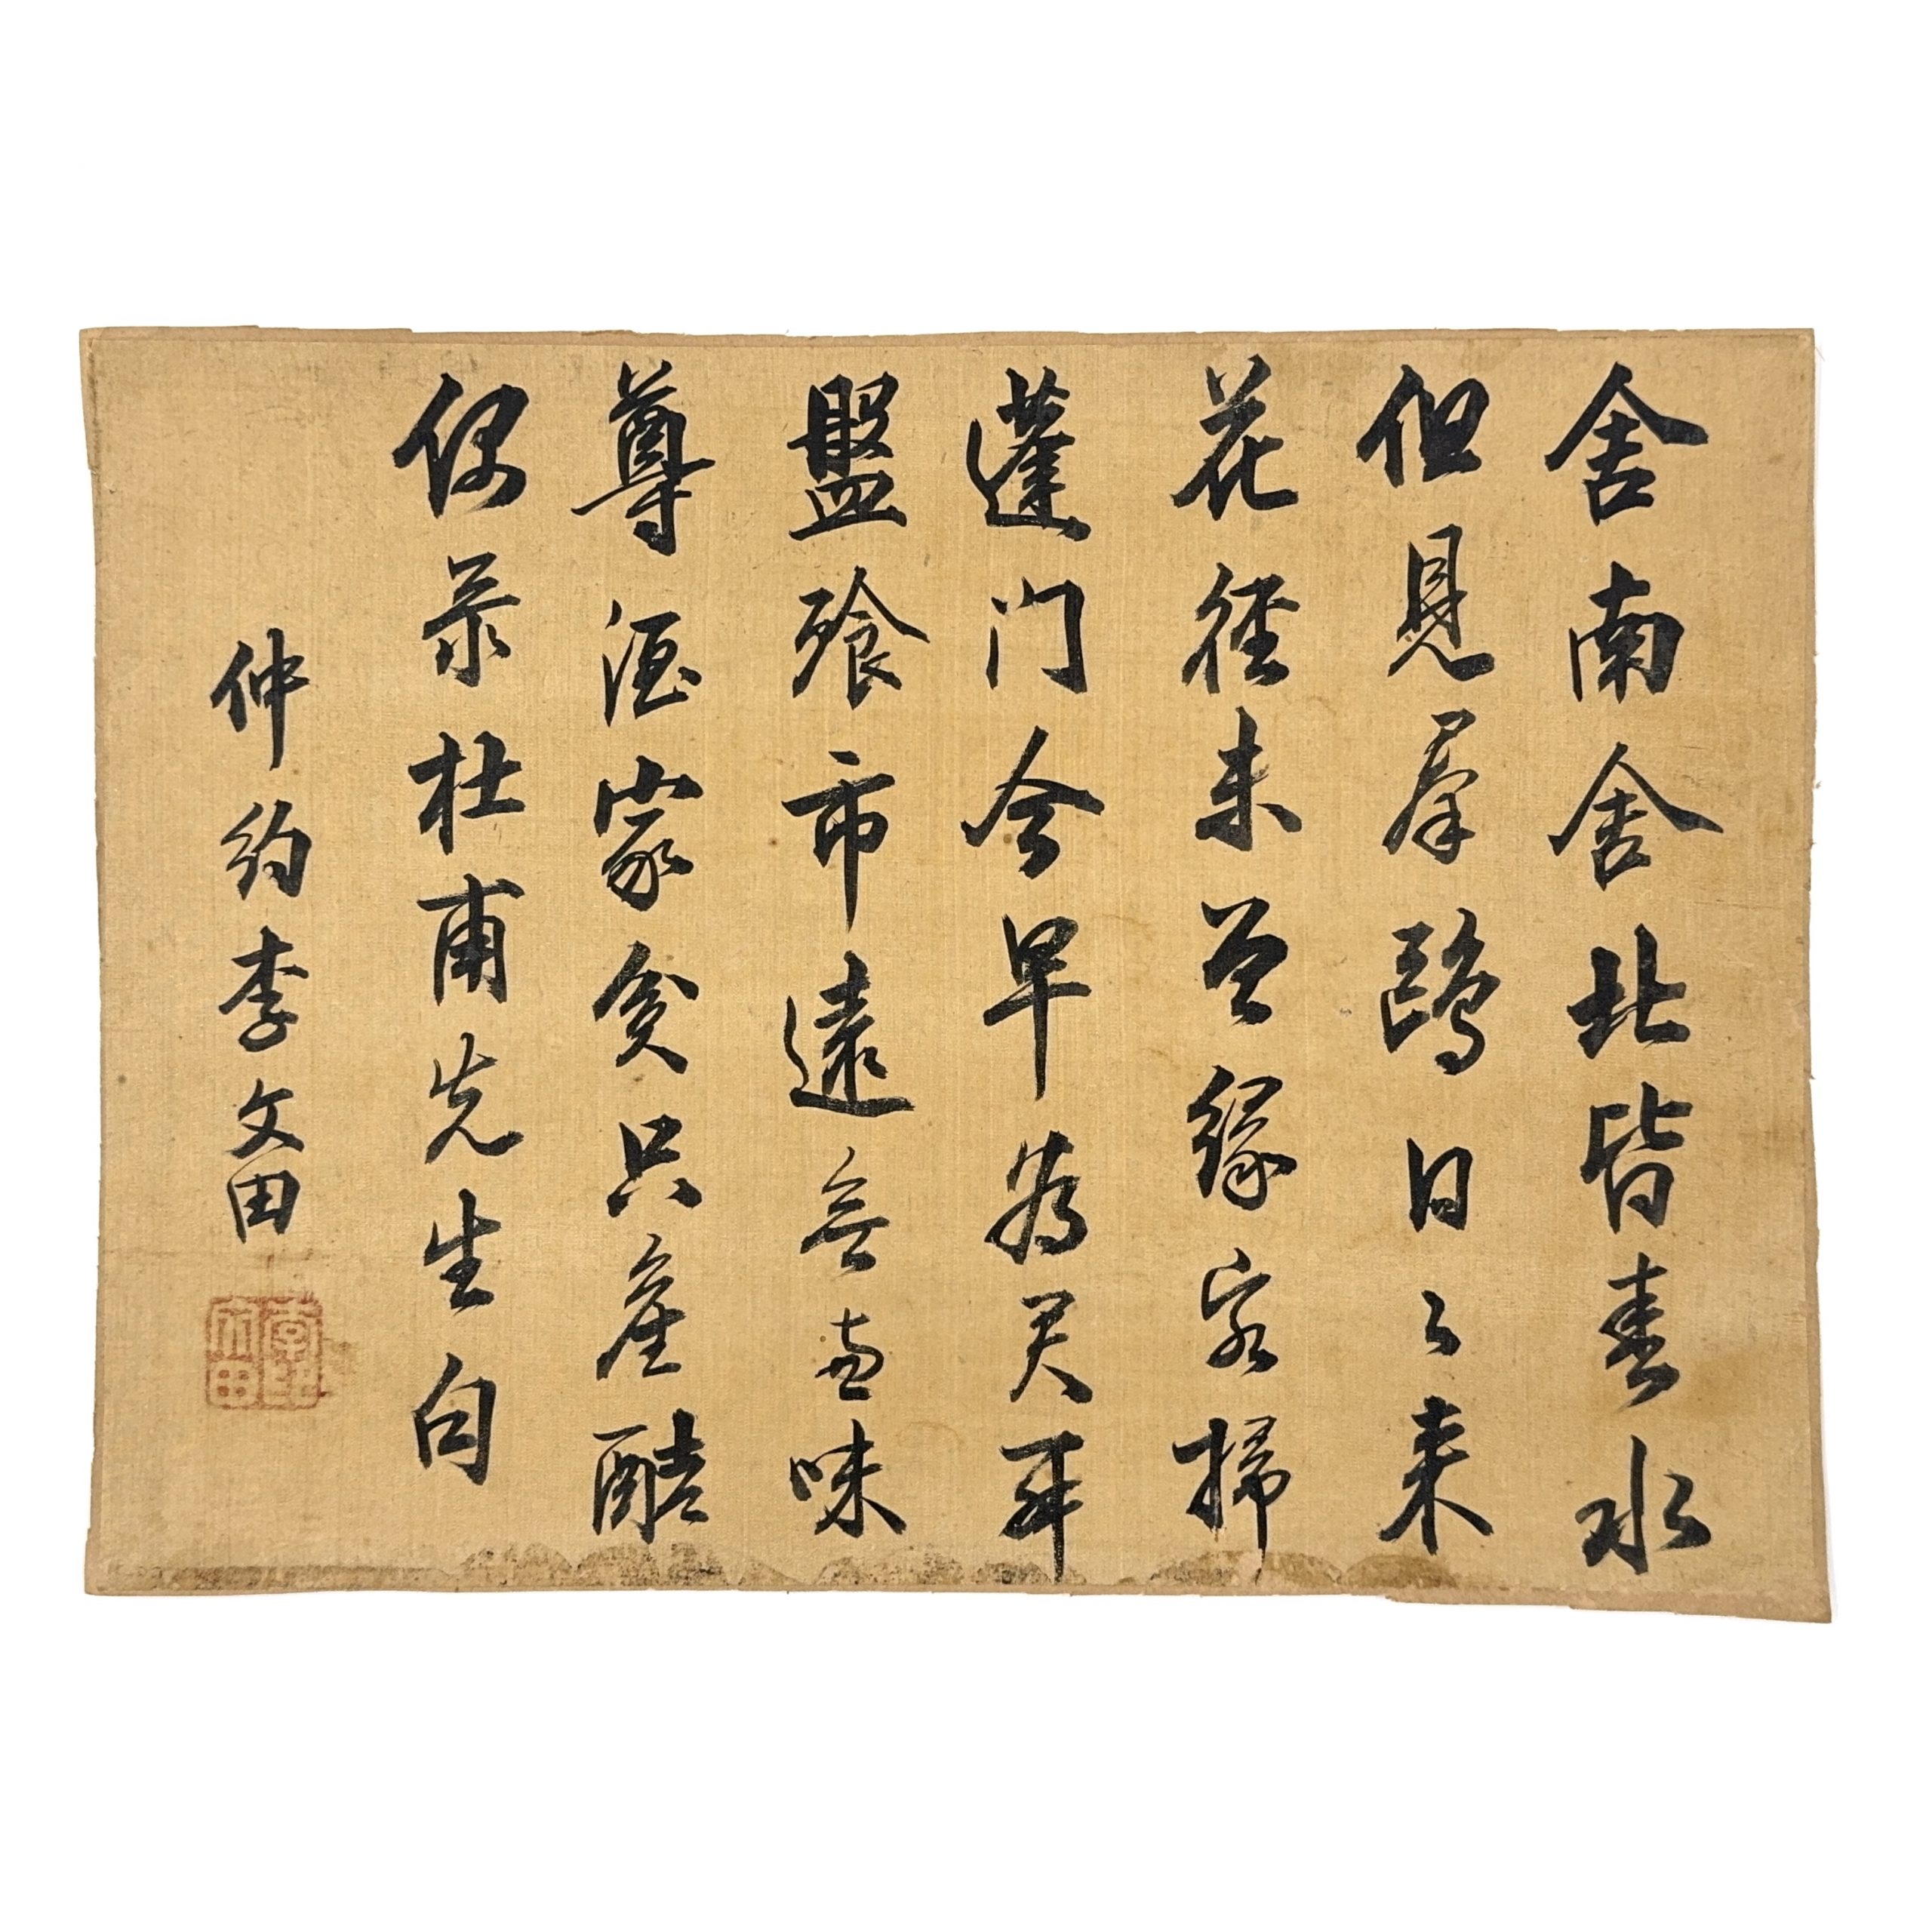 舍南舍北皆春水
但見羣鷗日々来
花徑未曾緣客掃
蓬门今早為君开
盤飧市遠無兼味
尊酒家貧只舊醅
偶录杜甫先生句
仲約李文田